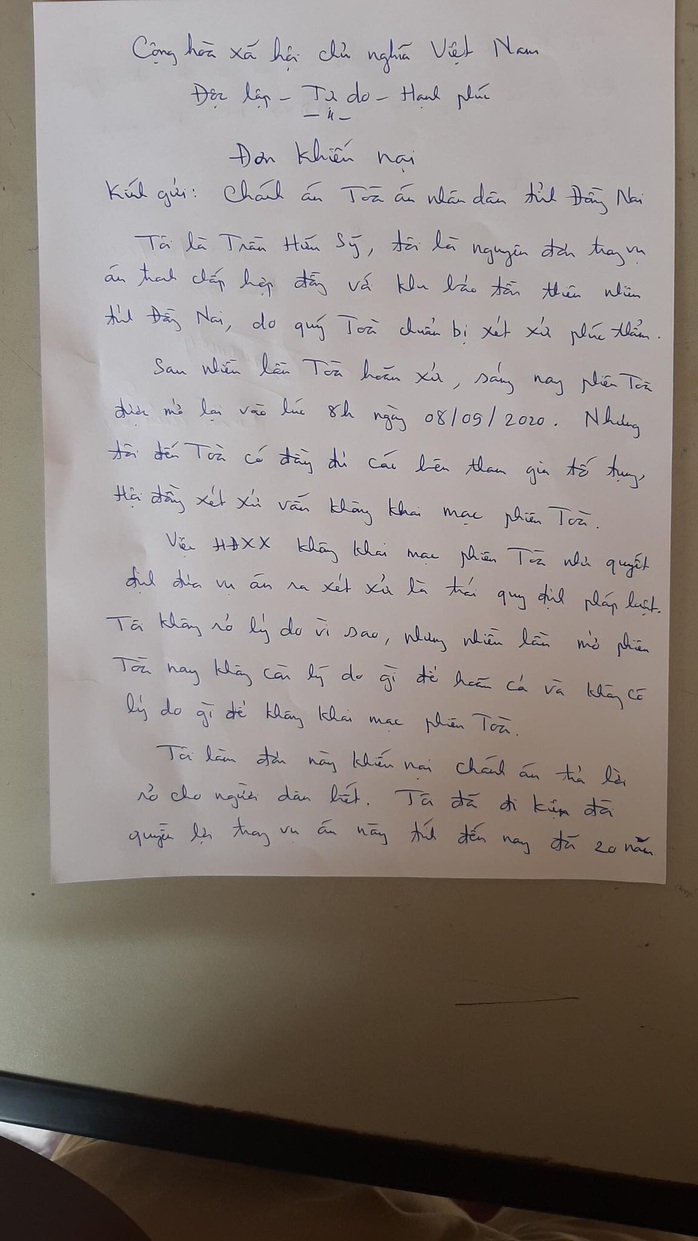 Cộng hòa xã hội chủ nghĩa Việt Nam
Độc lập - Tự do - Hạnh phúc
Đơn khiếu nại
Kính gửi: Chánh án Toà án nhân dân tỉnh Đồng Nai
Tôi là Trần Hữu Sỹ, tôi là nguyên đơn trong vụ
án tranh chấp hợp đồng với khu bảo tồn thiên nhiên
tỉnh Đồng Nai, do quý Toà chuẩn bị xét xử phúc thẩm.
Sau nhiều lần Toà hoãn xử, sáng nay phiên Toà
được mở lại vào lúc 8h ngày 08/09/2020. Nhưng
tôi đến Toà có đầy đủ các bên tham gia tố tụng,
Hội đồng xét xử vẫn không khai mạc phiên Toà.
Việc HĐXX không khai mạc phiên Toà như quyết
định đưa vụ án ra xét xử là trái quy định pháp luật.
Tôi không rõ lý do vì sao, nhưng nhiều lần mở phiên
Toà nay không cần lý do gì để hoãn cả và không có
lý do gì để không khai mạc phiên Toà.
Tôi làm đơn này khiếu nại chánh án trả lời
rõ cho người dân biết. Tôi đã đi kiện đòi
quyền lợi trong vụ án này tính đến nay đã 20 năm